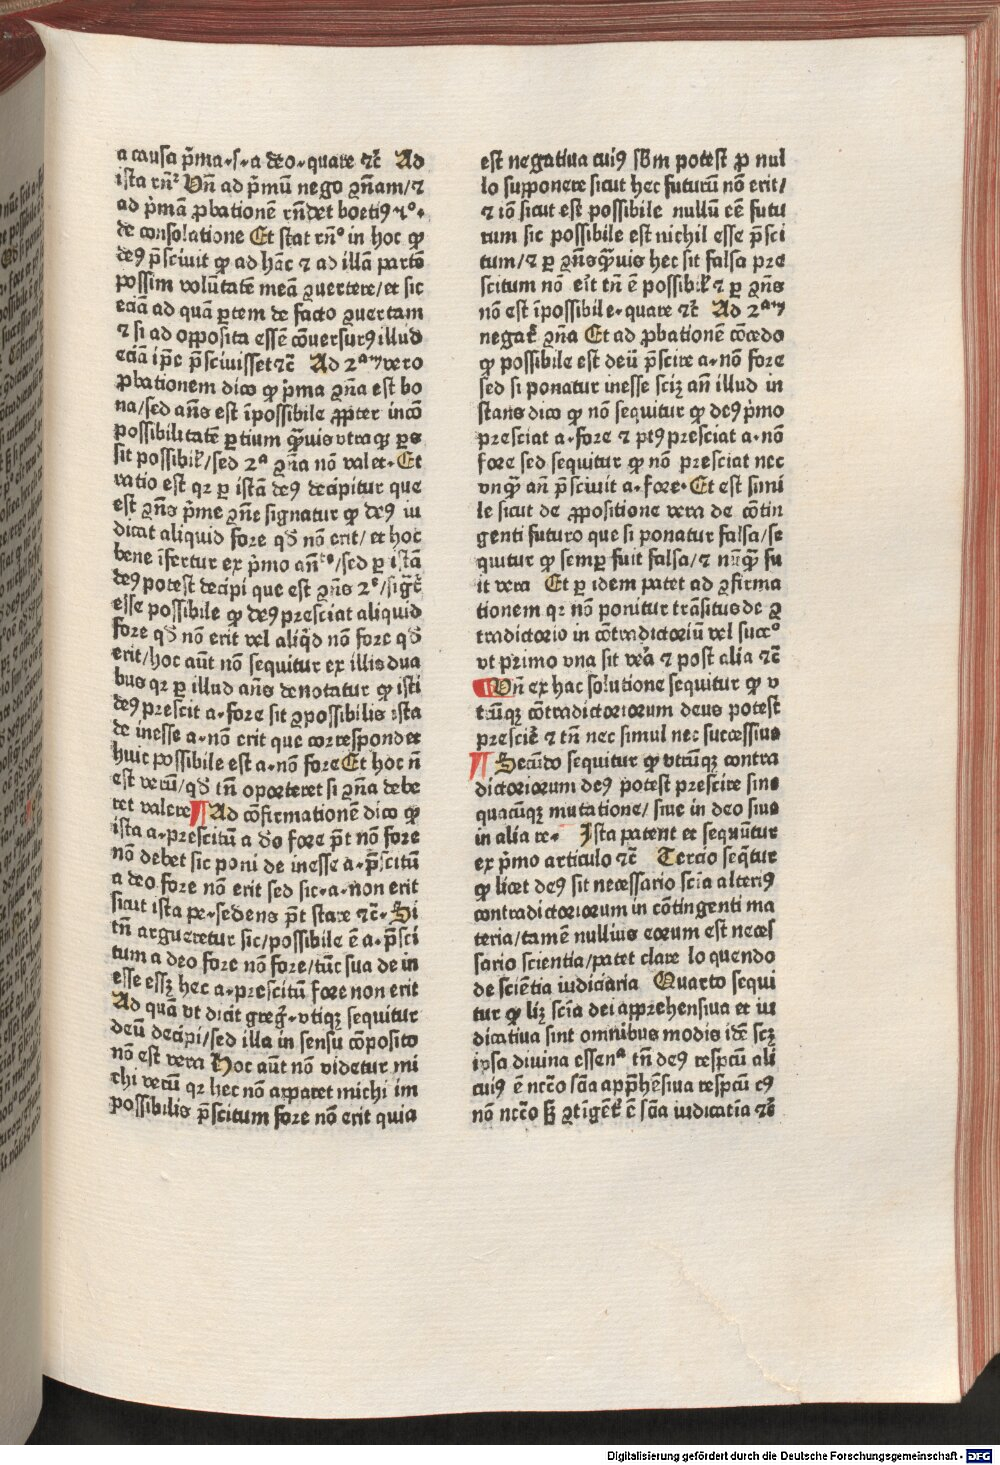 a causa p̄ma·s·a deo·quare ⁊c̄ Ad
ista rn̄ᵗ Vn̄ ad p̄mū nego ꝯn̄am/⁊
ad p̄mā ꝓbationē rn̄det boeti⁹
de consolatione Et stat rn̄º in hoc ꝙ
de⁹ p̄sciuit ꝙ ad hāc ⁊ ad illā partē
possim volūtatē meā ꝯuertere/et sic
eciā ad quā ꝑtem de facto ꝯuertam
⁊ si ad opposita essē cōuersur⁹ illud
eciā ip̄e p̄sciuisset⁊c̄ Ad 2ᵃᵐ vero
ꝓbationem dico ꝙ p̄ma ꝯn̄a est bo
na/sed an̄s est īpossibile ꝓpter incō
possibilitatē ꝑtium q̄uis vtraqꝫ ꝑ se
sit possibil̄/sed 2ᵃ ꝯn̄a nō valet·Et
ratio est qꝛ ꝑ istā de⁹ decipitur que
est ꝯn̄s p̄me ꝯn̄e signatur ꝙ de⁹ iu
dicat aliquid fore qd̄ nō erit/et hoc
bene īfertur ex p̄mo an̄te/sed ꝑ istā
de⁹ potest decipi que est ꝯn̄s 2ᵉ/
esse possibile ꝙ de⁹ presciat aliquid
fore qd̄ nō erit vel aliq̄d nō fore qd̄
erit/hoc aūt nō sequitur ex illis dua
bus qꝛ ꝑ illud an̄s denotatur ꝙ isti
de⁹ prescit a·fore sit ꝯpossibilis ista
de inesse a·nō erit que correspondet
huic possibile est a·nō fore Et hoc n̄
est verū/qd̄ tn̄ oporteret si ꝯn̄a debe
ret valere ¶ Ad cōfirmationē dico ꝙ
ista a·prescitū a deo fore p̄t nō fore
nō debet sic poni de inesse a·p̄scitū
a deo fore nō erit sed sic·a·non erit
sicut ista pe·sedens p̄t stare ⁊c̄·Si
tn̄ argueretur sic/possibile ē a·p̄sci
tum a deo fore nō fore/tūc sua de in
esse essꝫ hec a·prescitū fore non erit
Ad quā vt dicit greg̃·vtiqꝫ sequitur
deū decipi/sed illa in sensu cōposito
nō est vera Hoc aūt nō videtur mi
chi verū qꝛ hec nō apparet michi im
possibilis p̄scitum fore nō erit quia
est negatiua cui⁹ sb̄m potest ꝓ nul
lo supponere sicut hec futurū nō erit/
⁊ iō sicut est possibile nullū eē futu
rum sic possibile est nichil esse p̄sci
tum/⁊ ꝑ ꝯn̄s q̄uis hec sit falsa pre
scitum nō erit tn̄ ē possibil̄ ⁊ ꝑ ꝯn̄s
nō est īpossibile·quare ⁊c̄ Ad 2ᵃᵐ
negat̄ ꝯn̄a Et ad ꝓbationē cōcedo
ꝙ possibile est deū p̄scire a·nō fore
sed si ponatur inesse sciꝫ an̄ illud in
stans dico ꝙ nō sequitur ꝙ de⁹ p̄mo
presciat a·fore ⁊ pꝰ presciat a·nō
fore sed sequitur ꝙ nō presciat nec
vnq̄ an̄ p̄sciuit a·fore·Et est simi
le sicut de ꝓpositione vera de cōtin
genti futuro que si ponatur falsa/se
quitur ꝙ semꝑ fuit falsa/⁊ nūq̄ fu
it vera Et ꝑ idem patet ad ꝯfirma
tionem qꝛ nō ponitur trāsitus de ꝯ
tradictorio in cōtradictoriū vel succº
vt primo vna sit vera ⁊ post alia ⁊c̄
¶ Vn̄ ex hac solutione sequitur ꝙ v
trūqꝫ cōtradictoriorum deus potest
prescire ⁊ tn̄ nec simul nec successiue
¶ Secūdo sequitur ꝙ vtrūqꝫ contra
dictoriorum de⁹ potest prescire sine
quacūqꝫ mutatione/siue in deo siue
in alia re· Ista patent et sequūtur
ex p̄mo articulo ⁊c̄ Tercio seq̄tur
ꝙ licet de⁹ sit necessario scīa alteri⁹
contradictoriorum in cōtingenti ma
teria/tamē nullius eorum est neces
sario scientia/patet clare loquendo
de sciētia iudiciaria Quarto sequi
tur ꝙ licꝫ scīa dei apprehensiua et iu
dicatiua sint omnibus modis idē scꝫ
ipsa diuina essenᵃ tn̄ de⁹ respcū ali
cui⁹ ē nccō scīa app̄hēsiua respcū c⁹
nō nccō sꝫ ꝯtigēt̄ ē scīa iudicatīa ⁊c̄
Digitalisierung gefördert durch die Deutsche Forschungsgemeinschaft - DFG